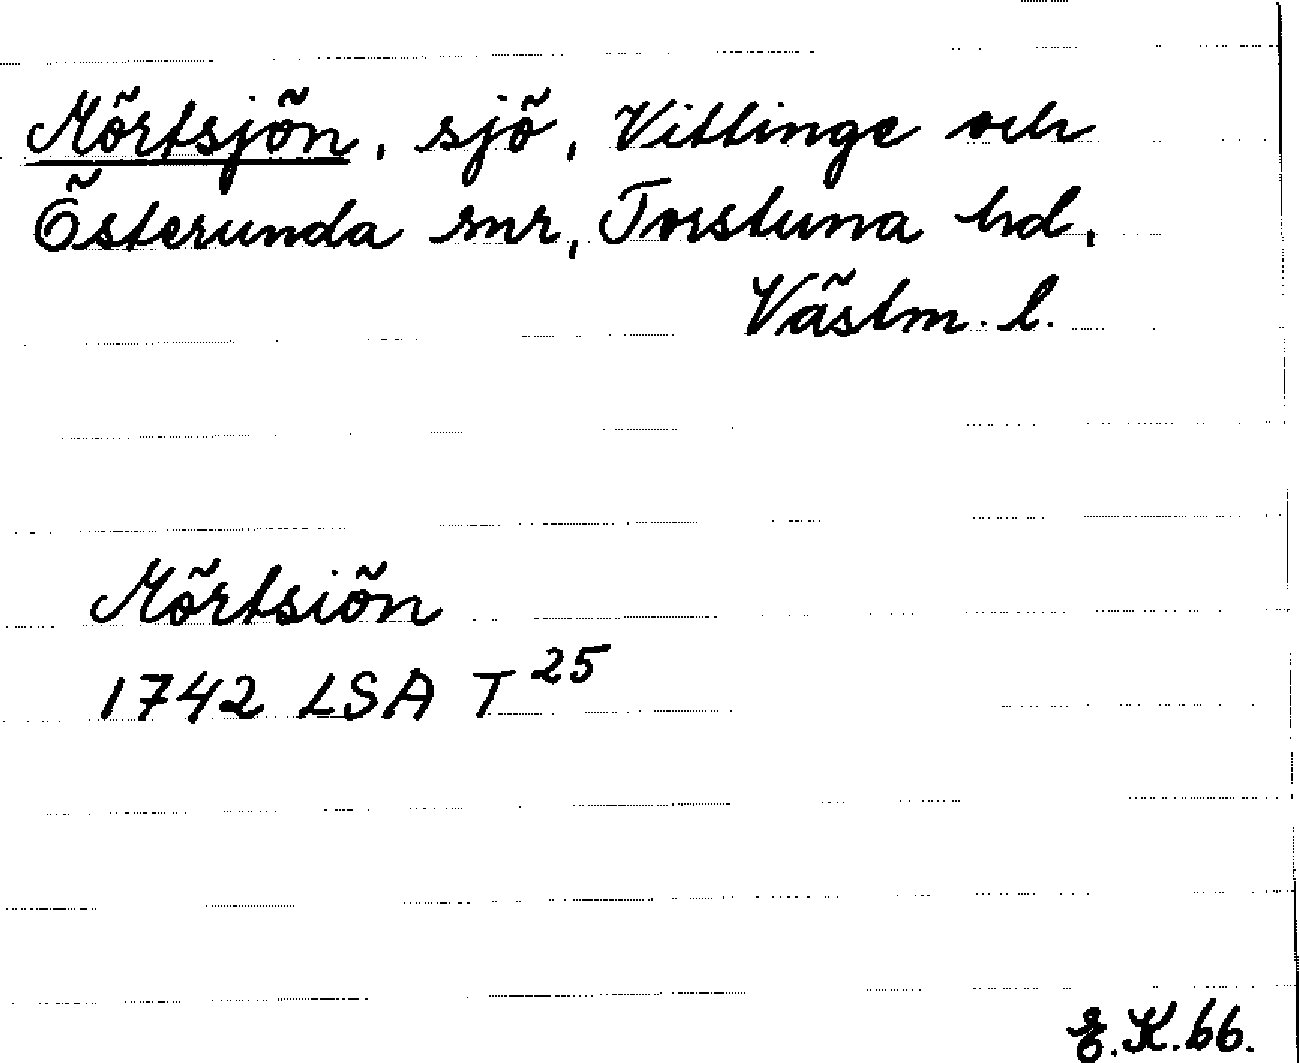 Mörtsjön, sjö, Vittinge och
Österunda snr, Torstuna hd,
Västm. l.
Mörtsiön
1742 LSA T 25
E.K.66.